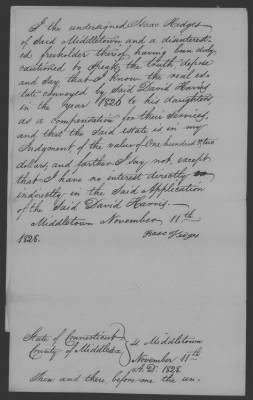 I the undersigned Isaac Hedges
of Said Middletown and a disinterest-
ed freeholder thereof, having been duly
cautioned to speak the truth, depose
and say that I Know the real es-
tate conveyed by Said David Harris
in the year 1826 to his daughters
as a compensation for their services,
and that the Said estate is in my
Judgment of the value of One hundred & two
dollars and farther I say not, except
that I have no interest directly or
indirectly in the Said Application
of the Said David Harris.—
Middletown November 11th
1828.
Isaac Hedges
State of Connecticut
County of Middlesex
ss Middletown
November 11th
A.D. 1828
Then and there, before me the un-